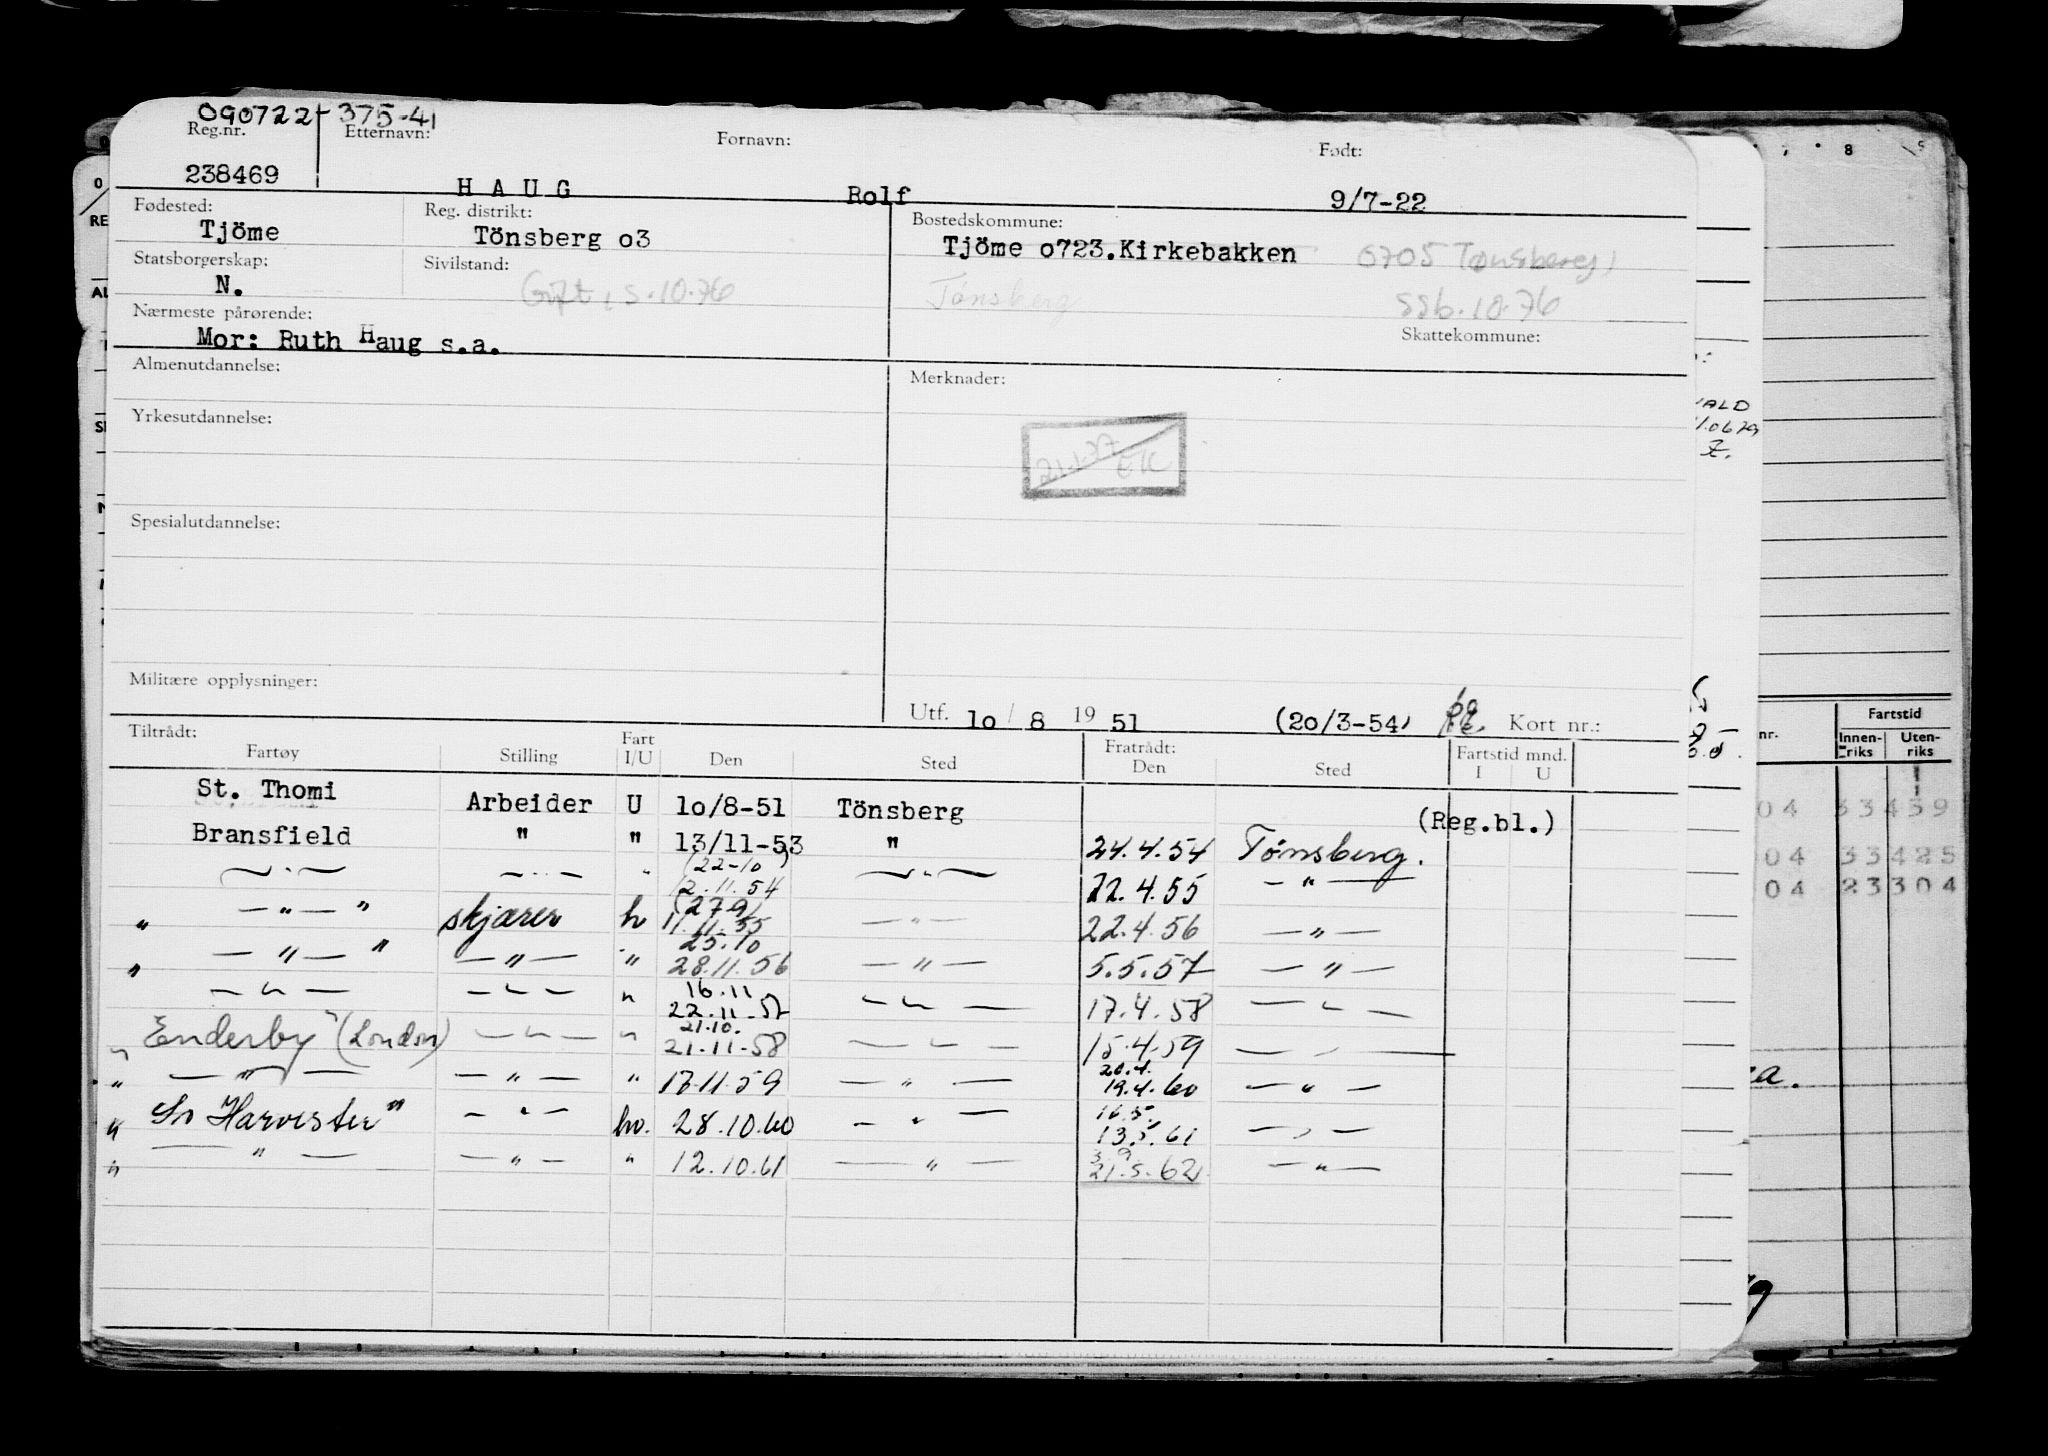 090722-375-41
Reg.nr. Etternavn: Fornavn: Født:
238469 HAUG Rolf 9/7-22
Fødested: Reg. distrikt: Bostedskommune:
Tjöme Tönsberg o3 Tjöme o723.Kirkebakken 0705 Tønsberg
Statsborgerskap: Sivilstand:
N. Gift, s.10.76 Tønsberg ssb.10.76
Nærmeste pårørende: Skattekommune:
Mor: Ruth Haug s.a.
Almenutdannelse: Merknader:
Yrkesutdannelse:
Spesialutdannelse:
Militære opplysninger:
Utf. 10/8 1951 (20/3-54) Kort nr.:
Tiltrådt: Fart Fratrådt: Fartstid mnd.
Fartøy Stilling I/U Den Sted Den Sted I U
St. Thomi Arbeider U 10/8-51 Tönsberg (Reg.bl.)
Bransfield " " 13/11-53 " 24.4.54 Tønsberg.
— " — — " — " (22-10) 2.11.54 — " — 22.4.55 — " —
" — " — " skjærer h (27.9) 11.11.55 — " — 22.4.56 — " —
" — " — " — " — " 25.10 28.11.56 — " — 5.5.57 — " —
— " — — " — " 16.11 22.11.57 — " — 17.4.58 — " —
" Enderby" (London) — " — " 21.10. 21.11.58 — " — 15.4.59 — " —
" — " — — " — " 17.11.59 — " — 20.4. 19.4.60 — " —
" Sn Harvester" — " — hv. 28.10.60 — " — 16.5. 13.5.61 — " —
" — " — — " — " 12.10.61 — " — 21.5.62 — " —
Fartstid
nr. Innenriks Utenriks
04 33439
04 33425
04 23304